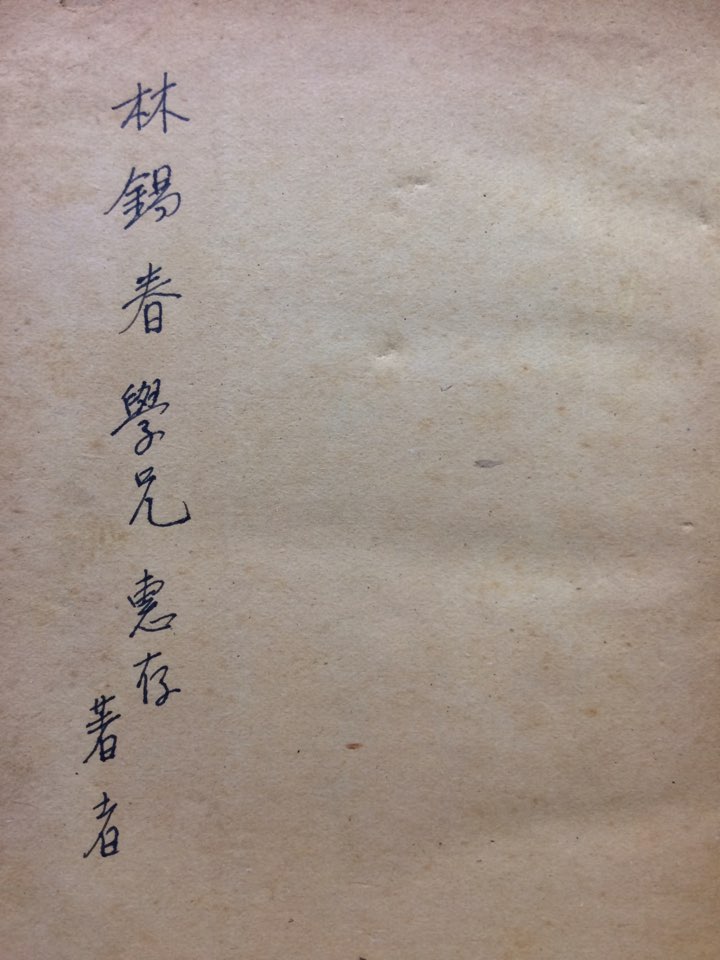 林錫春學兄惠存
著者